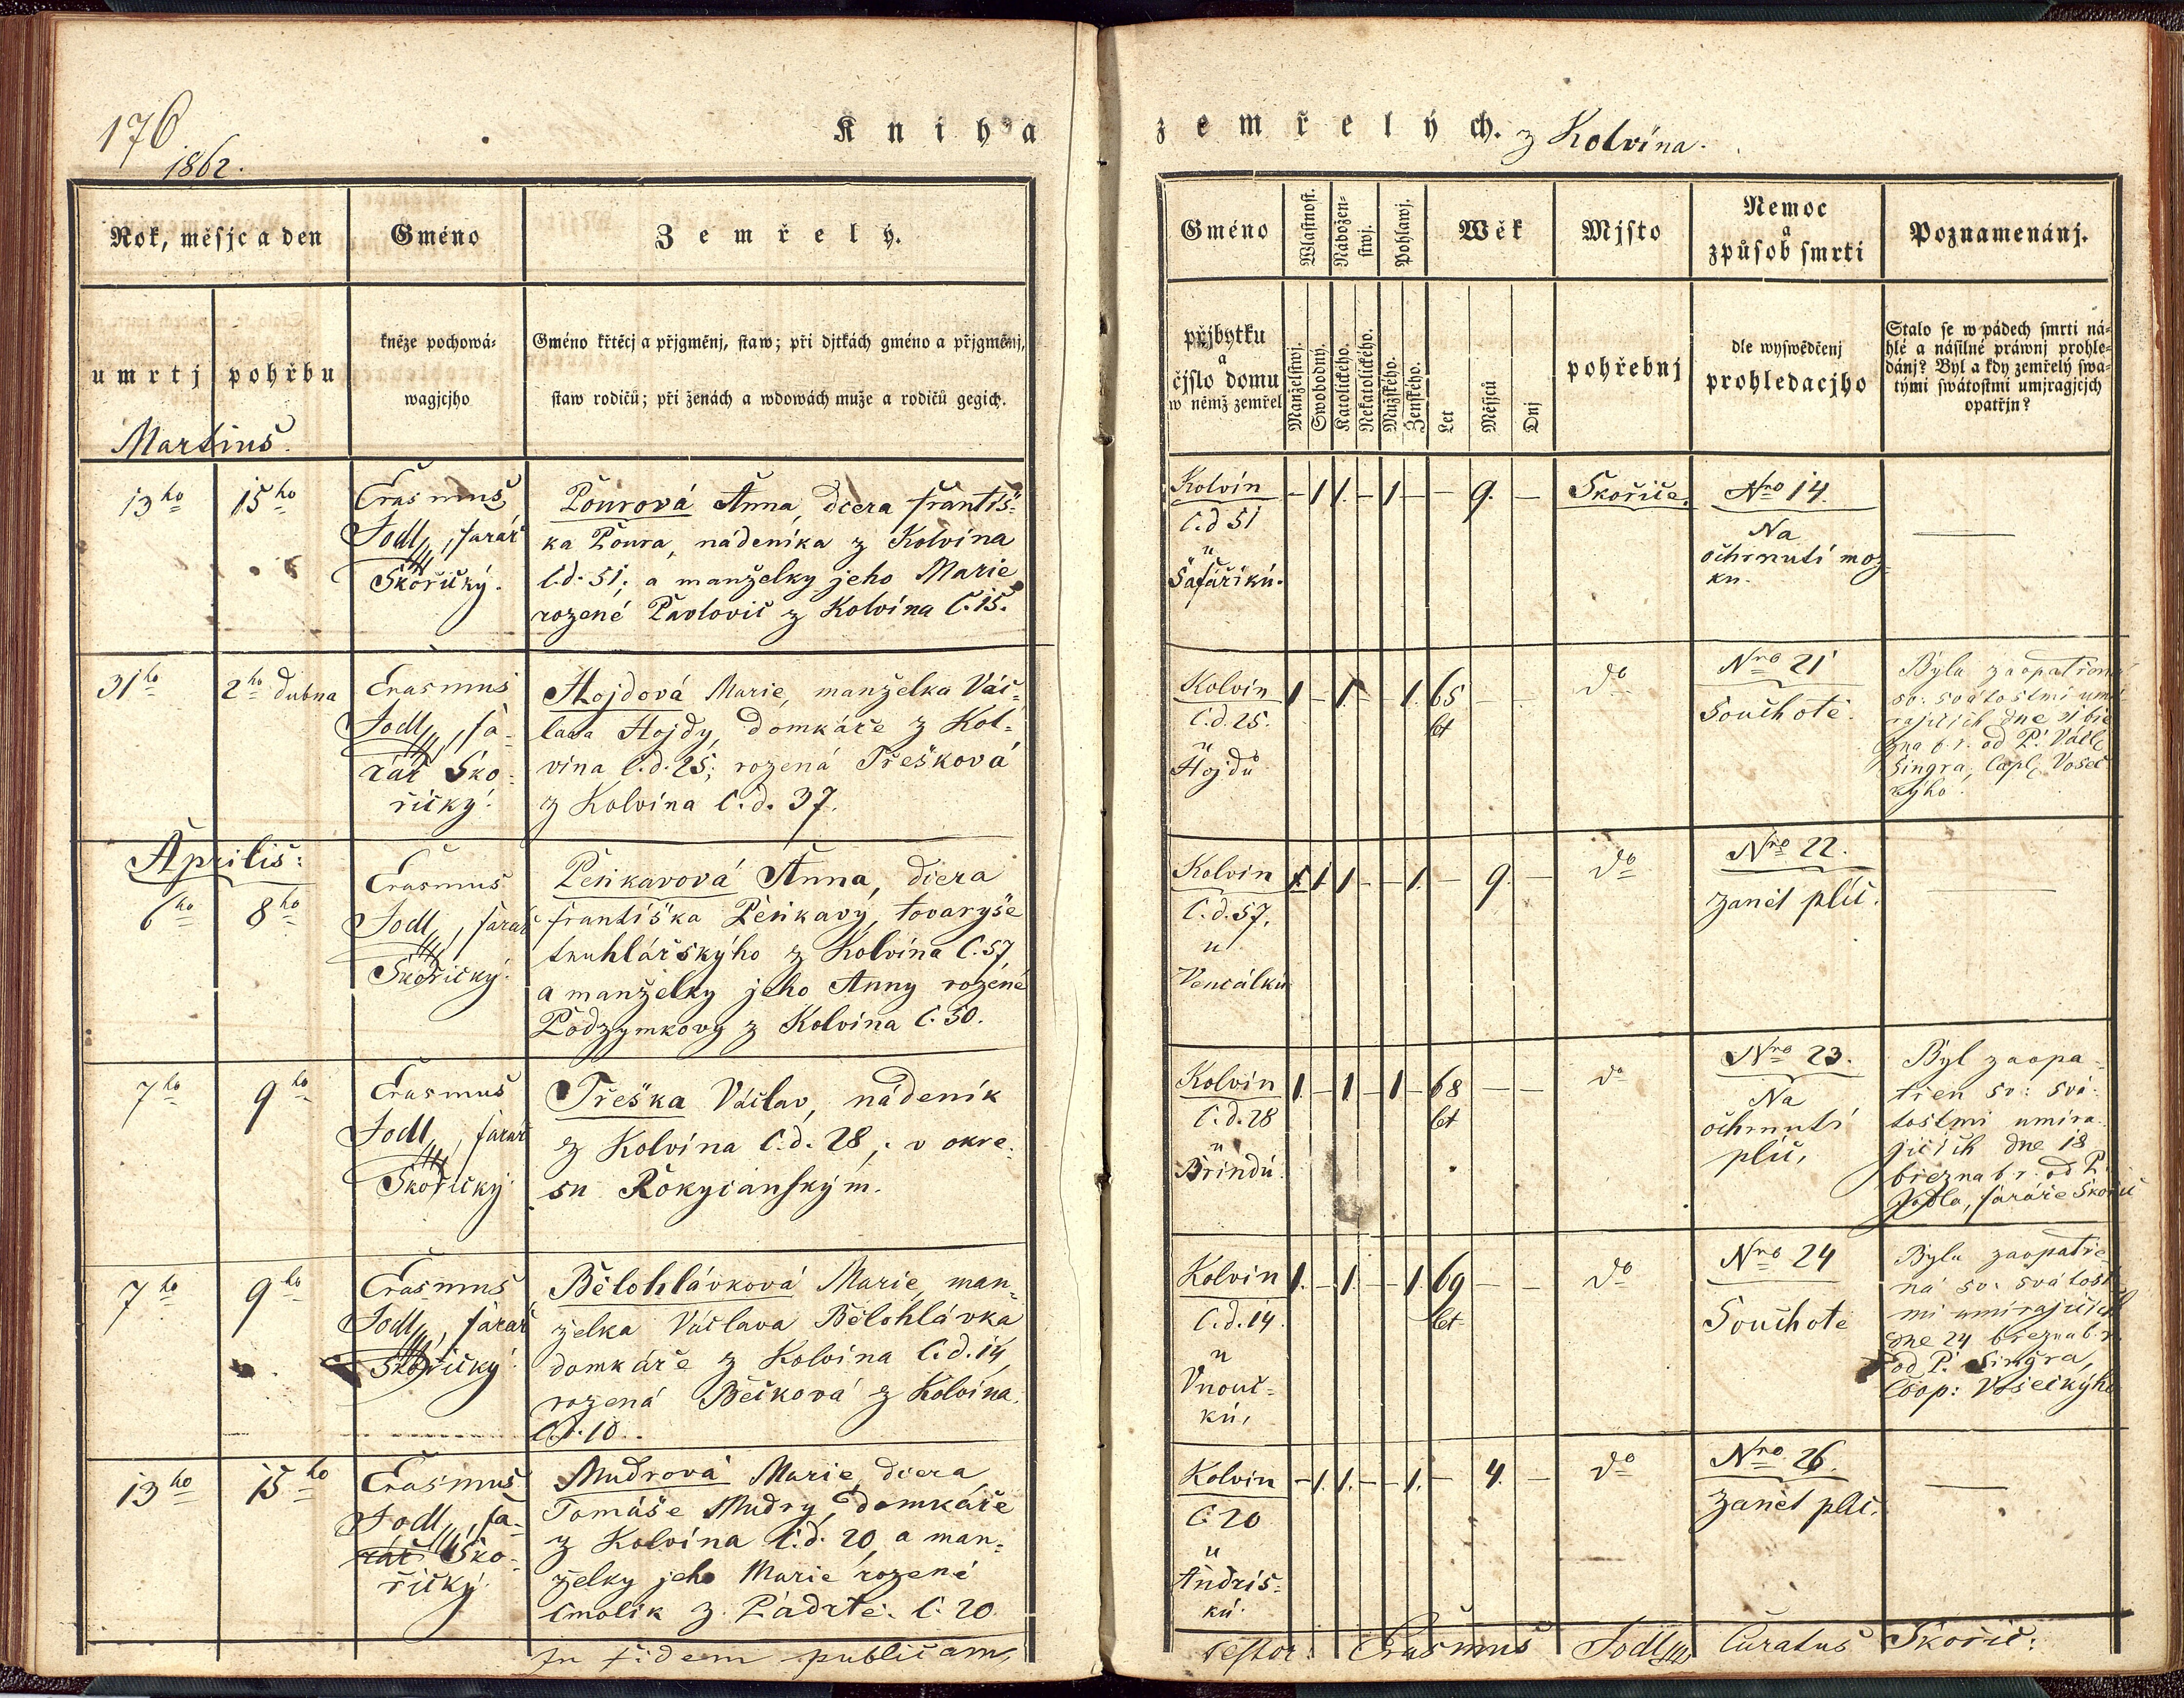 176
1862.
Kniha
zemřelých. z Kolvína.
Rok, měsjc a den
Gméno
Zemřelý.
umrtj
pohřbu
kněze pochowá-
wagjcjho
Gméno křtěcj a přjgměnj, staw; při djtkách gméno a přjgměnj,
staw rodičů; při ženách a wdowách muže a rodičů gegich.
Gméno
Wlastnost.
Nábožen-
stwj.
Pohlawj.
Wěk
Mjsto
Nemoc
a
způsob smrti
Poznamenánj.
přjbytku
a
čjslo domu
w němž zemřel
Manželstwj.
Swobodný.
Katolického.
Nekatolického.
Mužského.
Ženského.
Let
Měsjců
Dnj
pohřebnj
dle wyswědčenj
prohledacjho
Stalo se w pádech smrti ná-
hlé a násilné práwnj prohle-
dánj? Byl a kdy zemřelý swa-
tými swátostmi umjragjcjch
opatřjn?
Martius.
13ho 15ho
Erasmus
Jodl, farář
Skořický.
Pourová Anna, dcera Františ-
ka Poura, nádeníka z Kolvína
č.d. 51; a manželky jeho Marie
rozené Pavlovič z Kolvína č. 15.
Kolvín
č.d 51
u
Šafáříků.
- 1 1. - 1 - - 9. -
Skořice.
Nro 14.
Na
ochrnutí moz-
ku.
31ho 2ho dubna
Erasmus
Jodl, fa-
rář Sko-
řický.
Hojdová Marie, manželka Vác-
lava Hojdy, domkáře z Kol-
vína č.d. 25; rozená Třešková
z Kolvína č.d. 37.
Kolvín
č.d. 25.
u
Hojdů
1 - 1 - - 1. 65 - -
let
do
Nro 21
Souchotě.
Byla zaopatřena
sv: svátostmi umí-
rajících dne 31 bře
zna b.r. od P. Václ.
Singra, Capl. Vosec
kýho.
Aprilis:
6ho 8ho
Erasmus
Jodl, farář
Skořický.
Peňkavová Anna, dcera
Františka Peňkavy, tovaryše
truhlářskýho z Kolvína č. 57,
a manželky jeho Anny rozené
Podzymkovy z Kolvína č. 50.
Kolvín
č.d. 57,
u
Vencálků
1 1 - - 1. - 9. -
do
Nro 22.
Zanět plic.
7ho 9ho
Erasmus
Jodl, farář
Skořický.
Třeška Václav, nádeník
z Kolvína č.d. 28, v okre-
su Rokycanským.
Kolvín
č.d. 28
u
Brindů.
1. - 1 - 1 - 68 - -
let
do
Nro 23.
Na
ochrnutí
plic,
Byl zaopa-
třen sv: svá-
tostmi umíra-
jících dne 18
března b.r. od P.
Jodla, faráře Skořic
7ho 9ho
Erasmus
Jodl, farář
Skořický.
Bělohlávková Marie, man-
želka Václava Bělohlávka
domkáře z Kolvína č.d. 14,
rozená Bečková z Kolvína
č.d. 10.
Kolvín
č.d. 14.
u
Vnouč-
ků,
1. - 1. - - 1. 69 - -
let
do
Nro 24
Souchotě
Byla zaopatře
ná sv: svátost
mi umírajících
dne 24 března b.r.
od P. Singra,
Coop: Voseckýho
13ho 15ho
Erasmus
Jodl, fa-
rář Sko-
řický.
Mudrová Marie, dcera
Tomáše Mudry, domkáře
z Kolvína č.d. 20, a man-
želky jeho Marie rozené
Cmolík z Padrtě. č. 20
Kolvín
č. 20
u
Andris-
ků.
- 1. 1. - - 1. - 4. -
do
Nro 26.
Zanět plic.
In fidem publicam,
testor: Erasmus Jodl Curatus Skořic: